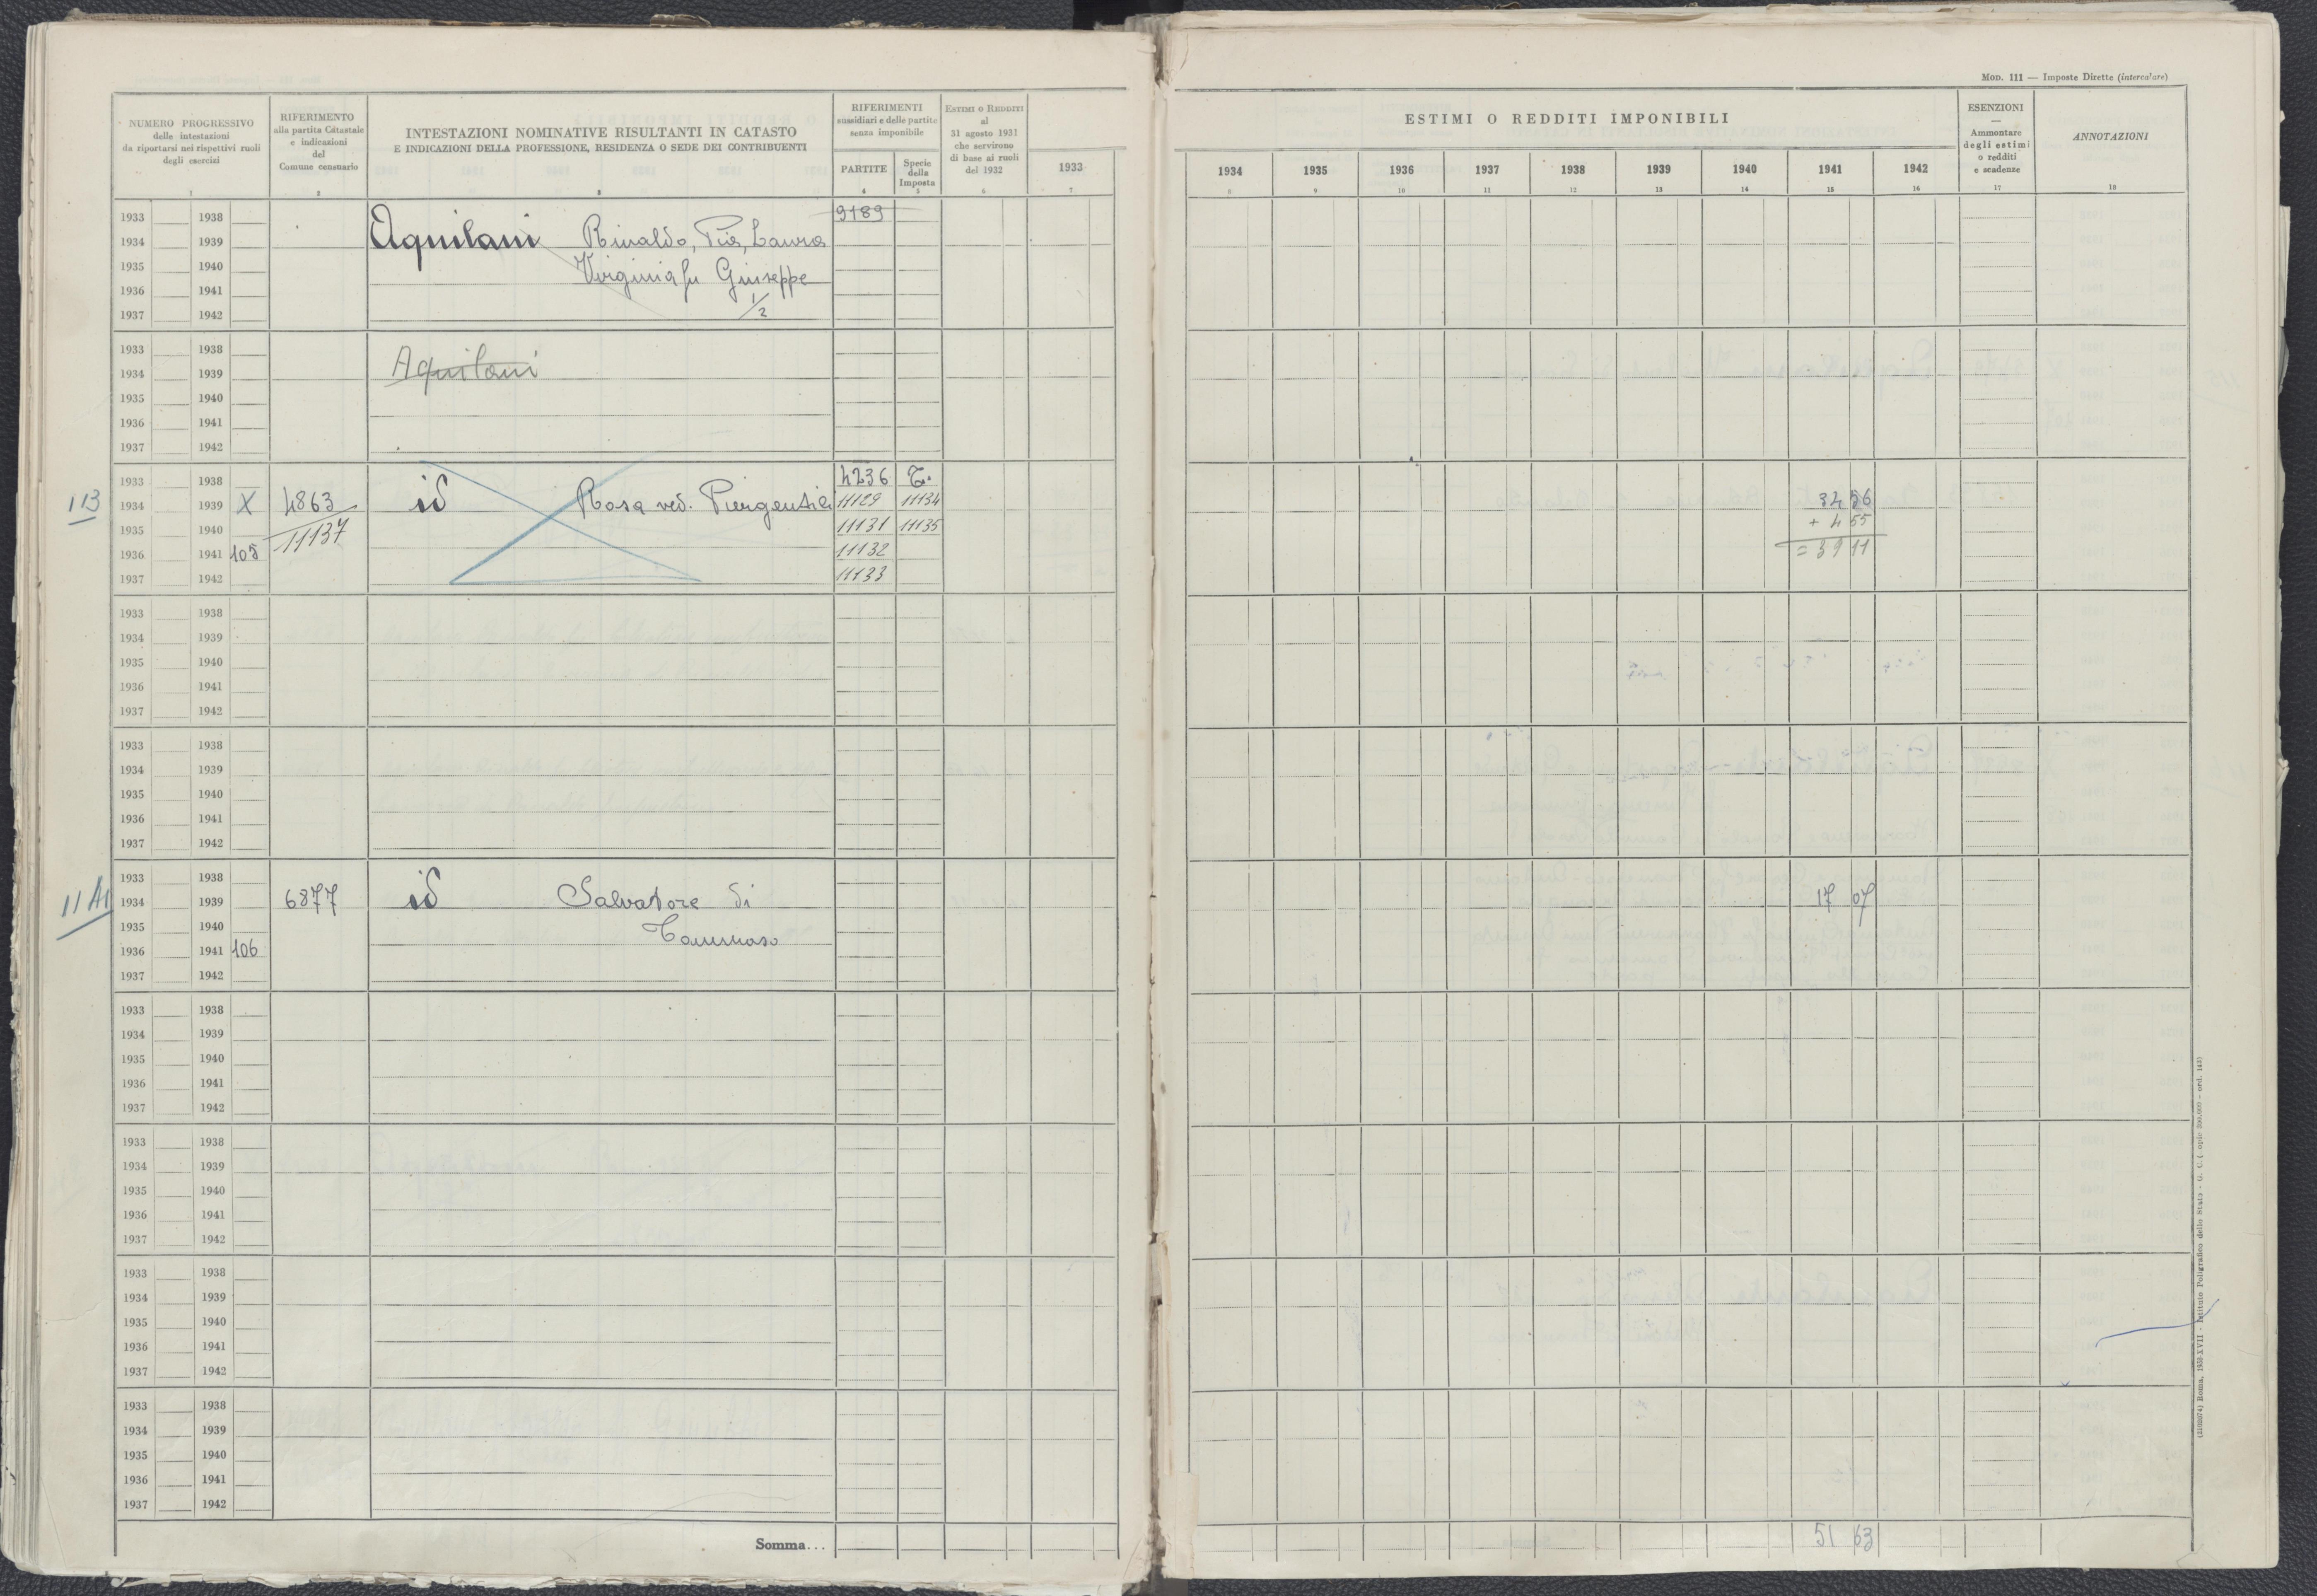 MOD. 111 — Imposte Dirette (intercalare)
NUMERO PROGRESSIVO
delle intestazioni
da riportarsi nei rispettivi ruoli
degli esercizi
1
RIFERIMENTO
alla partita Catastale
e indicazioni
del
Comune censuario
2
INTESTAZIONI NOMINATIVE RISULTANTI IN CATASTO
E INDICAZIONI DELLA PROFESSIONE, RESIDENZA O SEDE DEI CONTRIBUENTI
3
RIFERIMENTI
sussidiari e delle partite
senza imponibile
PARTITE
4
Specie
della
Imposta
5
ESTIMI O REDDITI
al
31 agosto 1931
che servirono
di base ai ruoli
del 1932
6
1933
7
ESTIMI O REDDITI IMPONIBILI
1934 1935 1936 1937 1938 1939 1940 1941 1942
8 9 10 11 12 13 14 15 16
ESENZIONI
—
Ammontare
degli estimi
o redditi
e scadenze
17
ANNOTAZIONI
18
1933 1938 9189
1934 1939 Aquilani Rinaldo, Pia, Laura
1935 1940 Virginia fu Giuseppe
1936 1941 1/2
1937 1942
1933 1938
1934 1939 Aquilani
1935 1940
1936 1941
1937 1942
1933 1938 4236 T.
113 1934 1939 X 4863 id Rosa ved. Piergentili 11129 11134 3456
1935 1940 11137 11131 11135 + 455
1936 1941 105 11132 = 3911
1937 1942 11133
1933 1938
1934 1939
1935 1940
1936 1941
1937 1942
1933 1938
1934 1939
1935 1940
1936 1941
1937 1942
1933 1938
1934 1939 6877 id Salvatore di 17 07
1935 1940 Tommaso
1936 1941 106
1937 1942
1933 1938
1934 1939
1935 1940
1936 1941
1937 1942
1933 1938
1934 1939
1935 1940
1936 1941
1937 1942
1933 1938
1934 1939
1935 1940
1936 1941
1937 1942
1933 1938
1934 1939
1935 1940
1936 1941
1937 1942
Somma... 51 63
Roma, 1938-XVII - Istituto Poligrafico dello Stato - G. C.